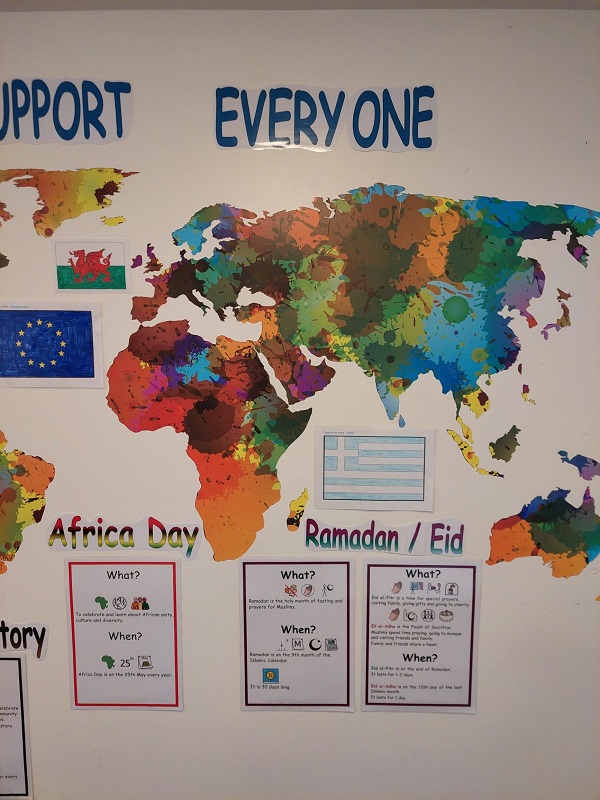 UPPORT EVERYONE
Africa Day
Ramadan / Eid
What?
To celebrate and learn about African unity,
culture and diversity.
When?
25th May
Africa Day is on the 25th May every year.
What?
Ramadan is the holy month of fasting and
prayers for Muslims.
When?
Ramadan is on the 9th month of the
Islamic Calendar.
It is 30 days long.
What?
Eid al-Fitr is a time for special prayers,
visiting family, giving gifts and giving to charity.
Eid al-Adha is the Feast of Sacrifice.
Muslims spend time praying, going to mosque
and visiting friends and family.
Family and friends share a feast.
When?
Eid al-Fitr is at the end of Ramadan.
It lasts for 1-3 days
Eid al-Adha is on the 10th day of the last
Islamic month.
It lasts for 1 day.
tory